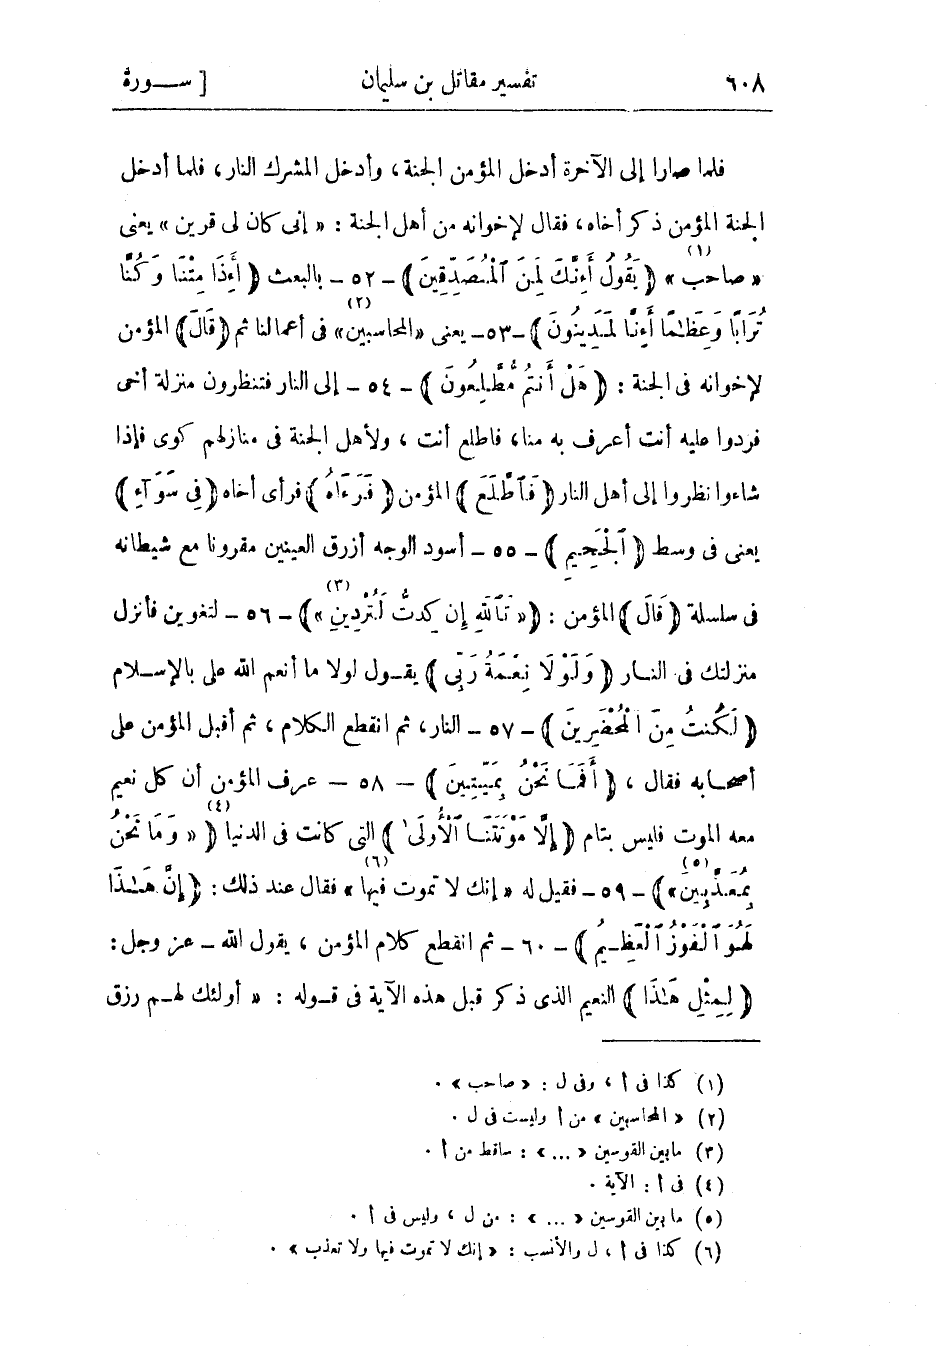 ٦٠٨ تفسير مقاتل بن سليمان [ ســـورة
فلما صارا إلى الآخرة أدخل المؤمن الجنة ، وأدخل المشرك النار ، فلما أدخل
الجنة المؤمن ذكر أخاه ، فقال لإخوانه من أهل الجنة : « إنى كان لى قرين » يعنى
« صاحب (١) » ﴿ يَقُولُ أَءِنَّكَ لَمِنَ ٱلْمُصَدِّقِينَ ﴾ - ٥٢ - بالبعث ﴿ أَءِذَا مِتْنَا وَكُنَّا
تُرَابًا وَعِظَـٰمًا أَءِنَّا لَمَدِينُونَ ﴾ - ٥٣ - يعنى « المحاسبين (٢) » فى أعمالنا ثم ﴿ قَالَ ﴾ المؤمن
لإخوانه فى الجنة : ﴿ هَلْ أَنتُم مُّطَّلِعُونَ ﴾ - ٥٤ - إلى النار فتنظرون منزلة أخى
فردوا عليه أنت أعرف به منا ، فاطلع أنت ، ولأهل الجنة فى منازلهم كوى فإذا
شاءوا نظروا إلى أهل النار ﴿ فَٱطَّلَعَ ﴾ المؤمن ﴿ فَرَءَاهُ ﴾ فرأى أخاه ﴿ فِى سَوَآءِ ﴾
يعنى فى وسط ﴿ ٱلْجَحِيمِ ﴾ - ٥٥ - أسود الوجه أزرق العينين مقرونا مع شيطانه
فى سلسلة ﴿ قَالَ ﴾ المؤمن : ﴿ « تَٱللَّهِ إِن كِدتَّ لَتُرْدِينِ (٣) » ﴾ - ٥٦ - لتغوين فأنزل
منزلتك فى النـار ﴿ وَلَوْلَا نِعْمَةُ رَبِّى ﴾ يقـول لولا ما أنعم الله على بالإسـلام
﴿ لَكُنتُ مِنَ ٱلْمُحْضَرِينَ ﴾ - ٥٧ - النار ، ثم انقطع الكلام ، ثم أقبل المؤمن على
أصحـابه فقال ، ﴿ أَفَمَا نَحْنُ بِمَيِّتِينَ ﴾ - ٥٨ - عرف المؤمن أن كل نعيم
معه الموت فليس بتام ﴿ إِلَّا مَوْتَتَنَا ٱلْأُولَىٰ ﴾ التى كانت فى الدنيا (٤) ﴿ « وَمَا نَحْنُ
بِمُعَذَّبِينَ (٥) » ﴾ - ٥٩ - فقيل له « إنك لا تموت فيها (٦) » فقال عند ذلك : ﴿ إِنَّ هَـٰذَا
لَهُوَ ٱلْفَوْزُ ٱلْعَظِيمُ ﴾ - ٦٠ - ثم انقطع كلام المؤمن ، يقول الله - عز وجل :
﴿ لِمِثْلِ هَـٰذَا ﴾ النعيم الذى ذكر قبل هذه الآية فى قـوله : « أولئك لهـم رزق
(١) كذا فى أ ، وفى ل : « صاحب » .
(٢) « المحاسبين » من أ وليست فى ل .
(٣) مابين القوسين « ... » : ساقط من أ .
(٤) فى أ : الآية .
(٥) ما بين القوسين « ... » : من ل ، وليس فى أ .
(٦) كذا فى أ ، ل والأنسب : « إنك لا تموت فيها ولا تعذب » .